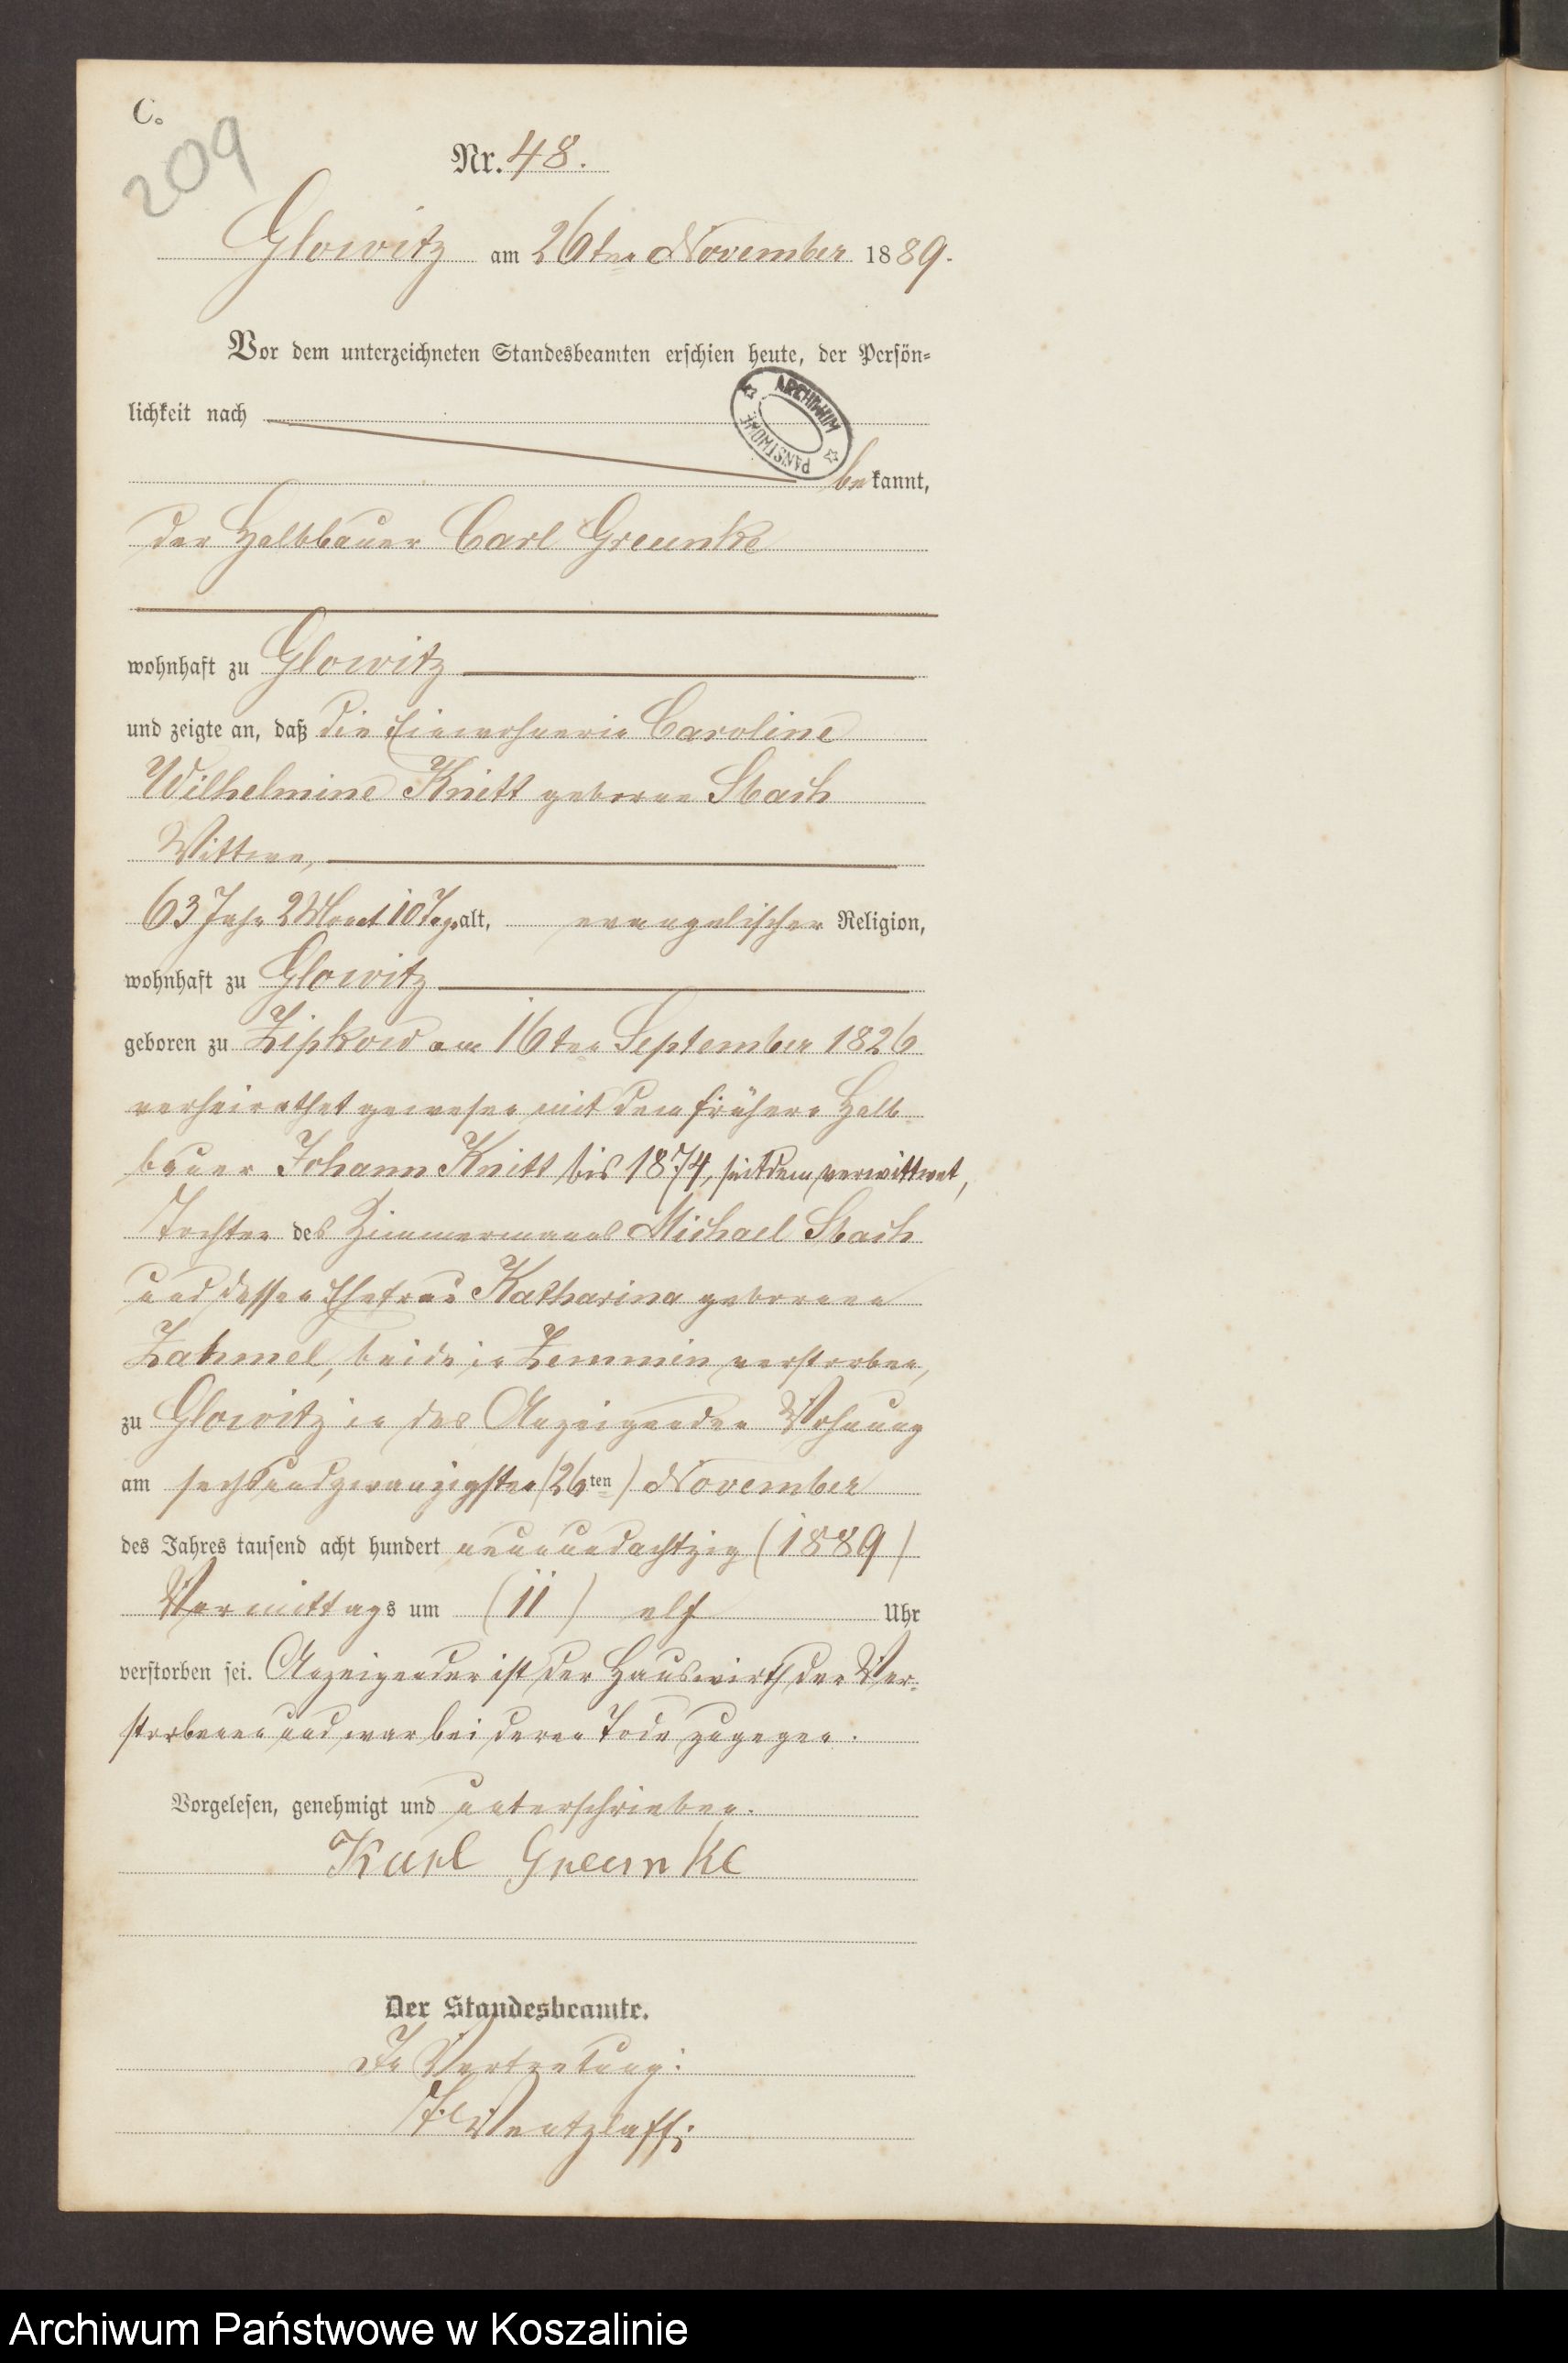 C.
209
Nr. 48.
Glowitz am 26ten November 1889.
Vor dem unterzeichneten Standesbeamten erschien heute, der Persön-
lichkeit nach
ARCHIWUM PAŃSTWOWE
bekannt,
der Halbbauer Carl Greunke
wohnhaft zu Glowitz
und zeigte an, daß die Einwohnerin Caroline
Wilhelmine Knitt geborne Stach
Wittwe,
63 Jahr 2 Monat 10 Tage alt, evangelischer Religion,
wohnhaft zu Glowitz
geboren zu Zipkow am 16ten September 1826
verheirathet gewesen mit dem frühern Halb-
bauer Johann Knitt bis 1874, seitdem verwittwet,
Tochter des Zimmermanns Michael Stach
und dessen Ehefrau Katharina geborenen
Zahmel, beide in Zemmin verstorben,
zu Glowitz in des Anzeigenden Wohnung
am sechsundzwanzigsten (26ten) November
des Jahres tausend acht hundert neunundachtzig (1889)
Vormittags um (11) elf Uhr
verstorben sei. Anzeigender ist der Hauswirth der Ver-
storbenen und war bei deren Tode zugegen.
Vorgelesen, genehmigt und unterschrieben.
Karl Greunke
Der Standesbeamte.
In Vertretung:
Wentzlaff.
Archiwum Państwowe w Koszalinie